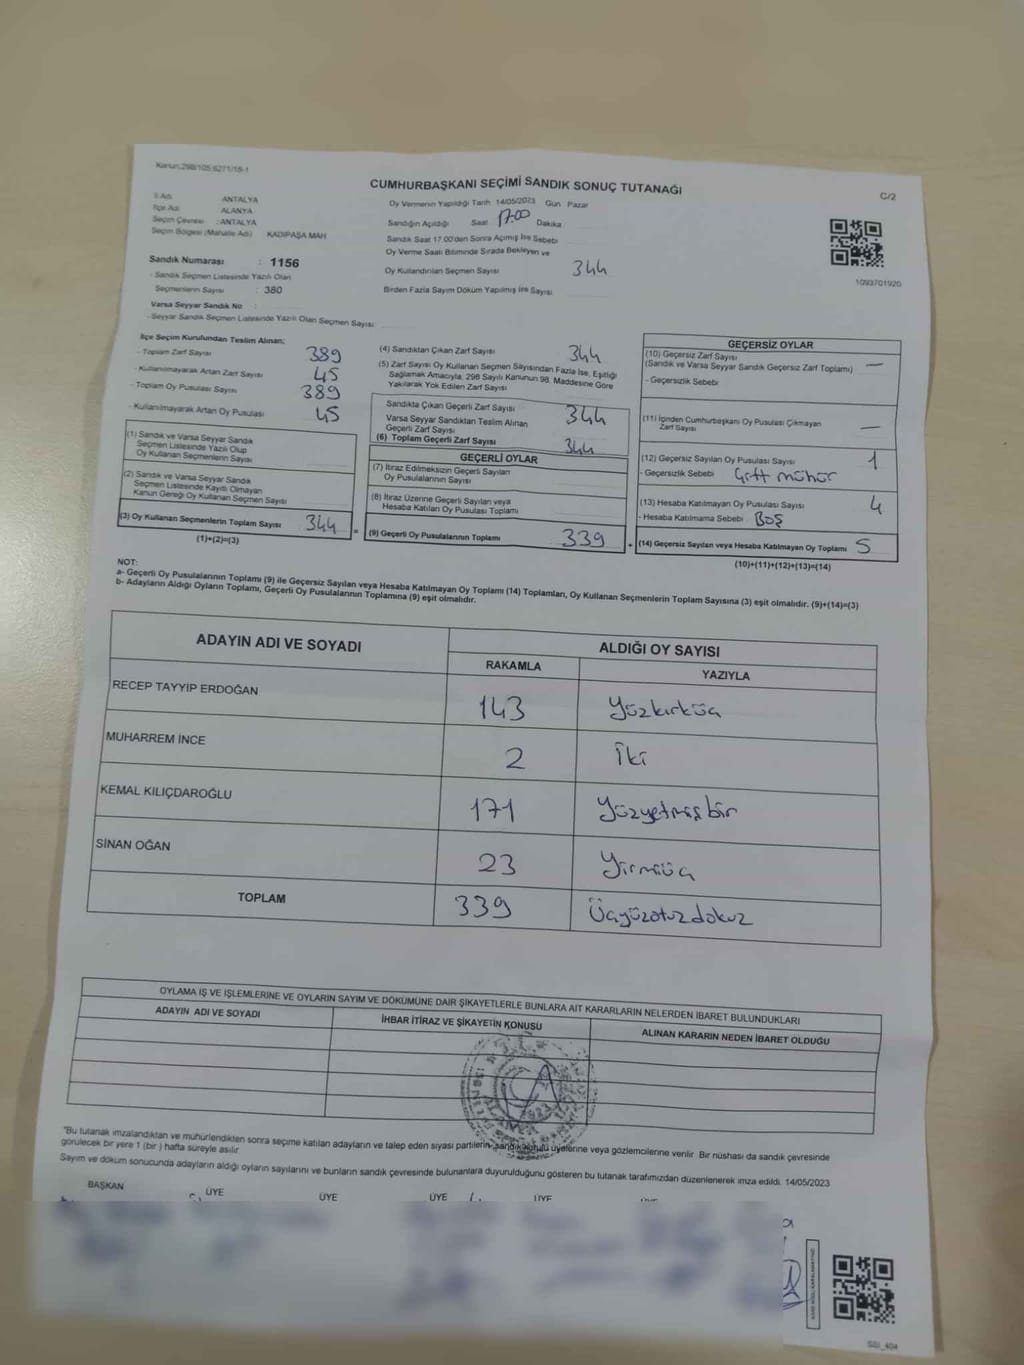 Kanun:298/105 6271/16-1
CUMHURBAŞKANI SEÇİMİ SANDIK SONUÇ TUTANAĞI
C/2
İl Adı : ANTALYA
İlçe Adı : ALANYA
Seçim Çevresi : ANTALYA
Seçim Bölgesi (Mahalle Adı) : KADIPAŞA MAH
Sandık Numarası : 1156
- Sandık Seçmen Listesinde Yazılı Olan
Seçmenlerin Sayısı : 380
Varsa Seyyar Sandık No :
- Seyyar Sandık Seçmen Listesinde Yazılı Olan Seçmen Sayısı
Oy Vermenin Yapıldığı Tarih 14/05/2023 Gün Pazar
Sandığın Açıldığı Saat 17:00 Dakika
Sandık Saat 17.00'den Sonra Açımış İse Sebebi
Oy Verme Saati Bitiminde Sırada Bekleyen ve
Oy Kullandırılan Seçmen Sayısı 344
Birden Fazla Sayım Döküm Yapılmış İse Sayısı
1093701920
İlçe Seçim Kurulundan Teslim Alınan;
- Toplam Zarf Sayısı 389
- Kullanılmayarak Artan Zarf Sayısı 45
- Toplam Oy Pusulası Sayısı 389
- Kullanılmayarak Artan Oy Pusulası 45
(1) Sandık ve Varsa Seyyar Sandık
Seçmen Listesinde Yazılı Olup
Oy Kullanan Seçmenlerin Sayısı
(2) Sandık ve Varsa Seyyar Sandık
Seçmen Listesinde Kayıtlı Olmayan
Kanun Gereği Oy Kullanan Seçmen Sayısı
(3) Oy Kullanan Seçmenlerin Toplam Sayısı 344
(1)+(2)=(3)
(4) Sandıktan Çıkan Zarf Sayısı 344
(5) Zarf Sayısı Oy Kullanan Seçmen Sayısından Fazla İse, Eşitliği
Sağlamak Amacıyla, 298 Sayılı Kanunun 98. Maddesine Göre
Yakılarak Yok Edilen Zarf Sayısı
Sandıkta Çıkan Geçerli Zarf Sayısı 344
Varsa Seyyar Sandıktan Teslim Alınan
Geçerli Zarf Sayısı
(6) Toplam Geçerli Zarf Sayısı 344
GEÇERLİ OYLAR
(7) İtiraz Edilmeksizin Geçerli Sayılan
Oy Pusulalarının Sayısı
(8) İtiraz Üzerine Geçerli Sayılan veya
Hesaba Katılan Oy Pusulası Toplamı
= (9) Geçerli Oy Pusulalarının Toplamı 339
GEÇERSİZ OYLAR
(10) Geçersiz Zarf Sayısı
(Sandık ve Varsa Seyyar Sandık Geçersiz Zarf Toplamı) —
- Geçersizlik Sebebi
(11) İçinden Cumhurbaşkanı Oy Pusulası Çıkmayan
Zarf Sayısı —
(12) Geçersiz Sayılan Oy Pusulası Sayısı 1
- Geçersizlik Sebebi Çift mühür
(13) Hesaba Katılmayan Oy Pusulası Sayısı 4
- Hesaba Katılmama Sebebi Boş
+ (14) Geçersiz Sayılan veya Hesaba Katılmayan Oy Toplamı 5
(10)+(11)+(12)+(13)=(14)
NOT:
a- Geçerli Oy Pusulalarının Toplamı (9) ile Geçersiz Sayılan veya Hesaba Katılmayan Oy Toplamı (14) Toplamları, Oy Kullanan Seçmenlerin Toplam Sayısına (3) eşit olmalıdır. (9)+(14)=(3)
b- Adayların Aldığı Oyların Toplamı, Geçerli Oy Pusulalarının Toplamına (9) eşit olmalıdır.
ADAYIN ADI VE SOYADI ALDIĞI OY SAYISI
RAKAMLA YAZIYLA
RECEP TAYYİP ERDOĞAN 143 Yüzkırküç
MUHARREM İNCE 2 İki
KEMAL KILIÇDAROĞLU 171 Yüzyetmişbir
SİNAN OĞAN 23 Yirmiüç
TOPLAM 339 Üçyüzotuzdokuz
OYLAMA İŞ VE İŞLEMLERİNE VE OYLARIN SAYIM VE DÖKÜMÜNE DAİR ŞİKAYETLERLE BUNLARA AİT KARARLARIN NELERDEN İBARET BULUNDUKLARI
ADAYIN ADI VE SOYADI İHBAR İTİRAZ VE ŞİKAYETİN KONUSU ALINAN KARARIN NEDEN İBARET OLDUĞU
"Bu tutanak imzalandıktan ve mühürlendikten sonra seçime katılan adayların ve talep eden siyasi partilerin sandık kurulu üyelerine veya gözlemcilerine verilir. Bir nüshası da sandık çevresinde
görülecek bir yere 1 (bir) hafta süreyle asılır.
Sayım ve döküm sonucunda adayların aldığı oyların sayılarını ve bunların sandık çevresinde bulunanlara duyurulduğunu gösteren bu tutanak tarafımızdan düzenlenerek imza edildi. 14/05/2023
BAŞKAN ÜYE ÜYE ÜYE ÜYE